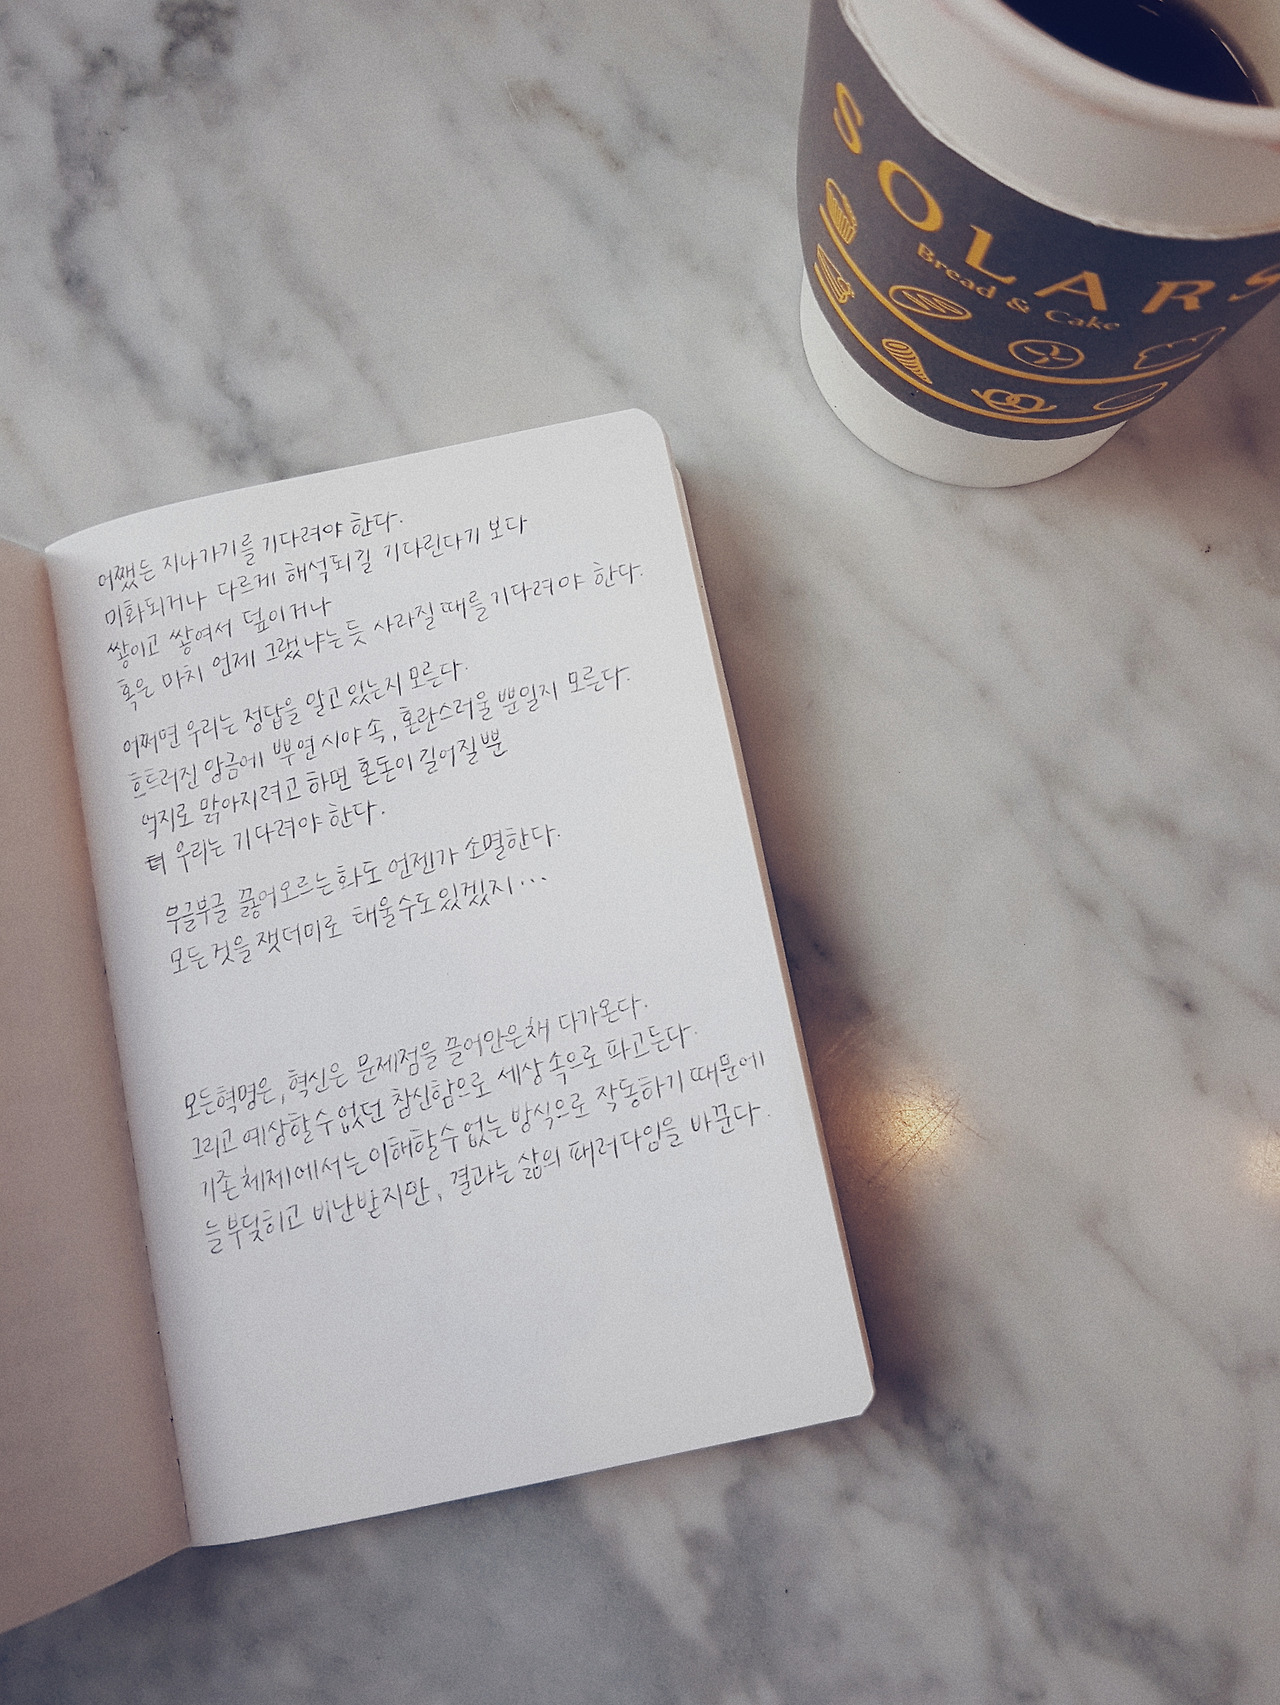 SOLARS
Bread & Cake
어쨌든 지나가기를 기다려야 한다.
미화되거나 다르게 해석되길 기다린다기 보다
쌓이고 쌓여서 덮이거나
혹은 마치 언제 그랬냐는듯 사라질 때를 기다려야 한다.
어쩌면 우리는 정답을 알고 있는지 모른다.
흐트러진 앙금에 뿌연 시야 속, 혼란스러울 뿐일지 모른다.
억지로 맑아지려고 하면 혼돈이 길어질 뿐
우리는 기다려야 한다.
부글부글 끓어오르는 화도 언젠가 소멸한다.
모든 것을 잿더미로 태울 수도 있겠지...
모든 혁명은, 혁신은 문제점을 끌어안은채 다가온다.
그리고 예상할 수 없던 참신함으로 세상 속으로 파고든다.
기존 체제에서는 이해할 수 없는 방식으로 작동하기 때문에
늘 부딪히고 비난받지만, 결과는 삶의 패러다임을 바꾼다.